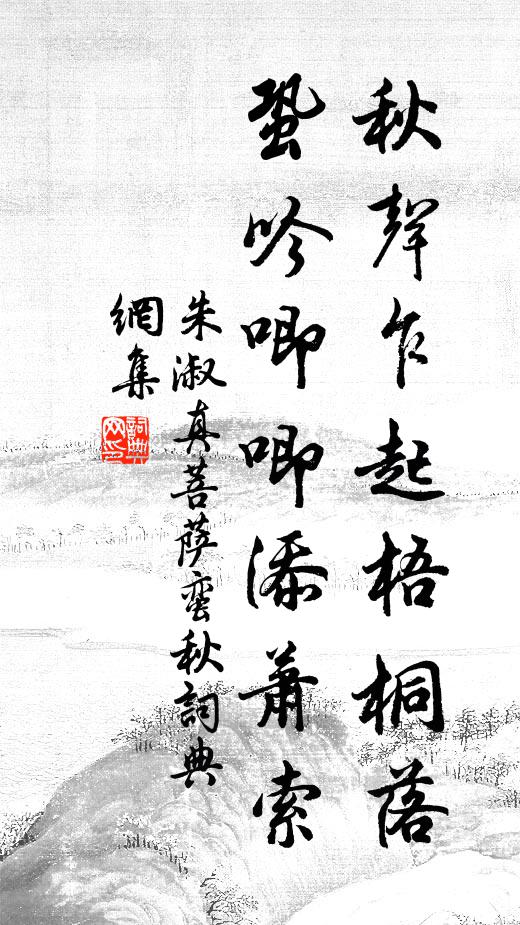 秋聲乍起梧桐落
蛩吟唧唧添蕭索
朱淑真菩薩蛮秋詞典
網集
詞典网印